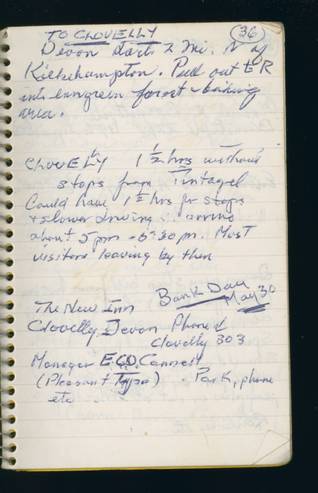 TO CLOVELLY (36)
Devon starts 2 mi. N of
Kilkhampton. Pull out to R
into evergreen forest -
area.
CLOVELLY 1 1/2 hrs without
stops from Tintagel
Could have 1 1/2 hrs for stops
+ slower driving arrive
about 5 pm - 5:30 pm. Most
visitors leaving by then
Bank Day
May 30
The New Inn
Clovelly Devon Phone
Clovelly 303
Manager
(Pleasant) . Park, phone
etc